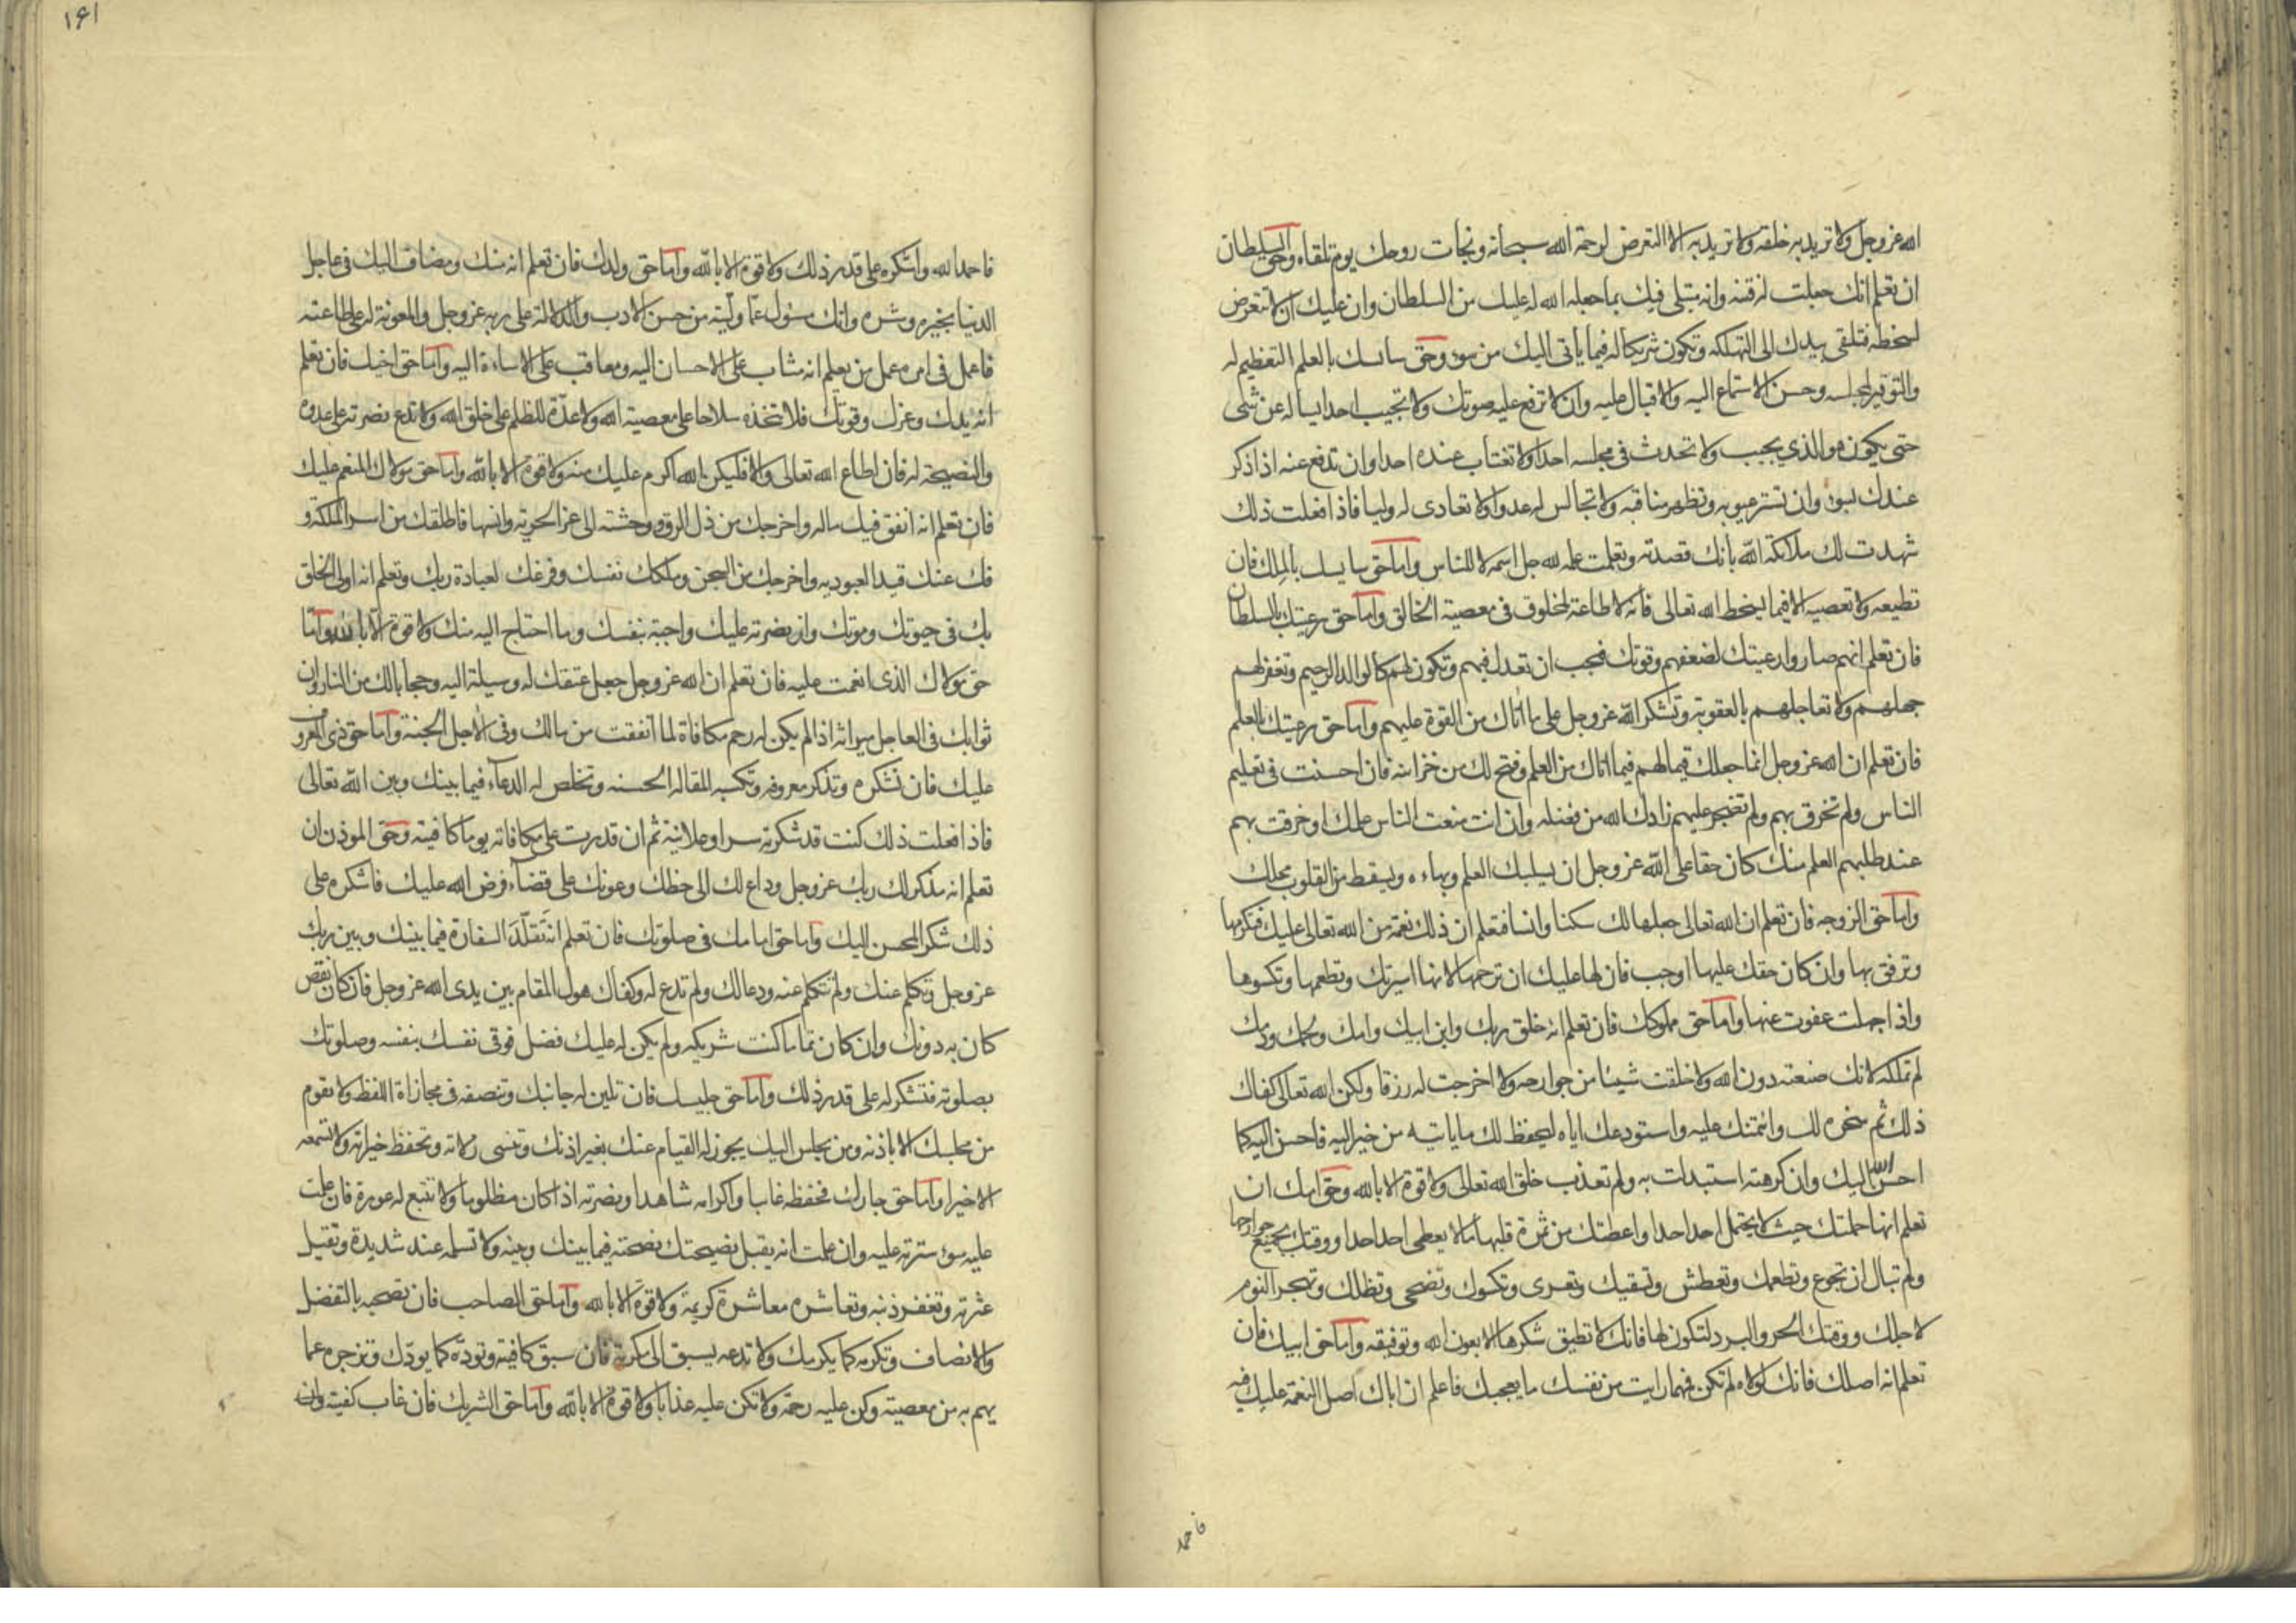 الله عز وجل ولا تريد به خلقه ولا تريد به الا التعرض لرحمة الله سبحانه ونجات روحك يوم تلقاه وحق السلطان
ان تعلم انك جعلت له فتنة وانه مبتلى فيك بما جعله الله له عليك من السلطان وان عليك ان لا تتعرض
لسخطه فتلقى بيدك الى التهلكه وتكون شريكا له فيما ياتى اليك من سوء وحق سائسك بالعلم التعظيم له
والتوقير لمجلسه وحسن الاستماع اليه والاقبال عليه وان لا ترفع عليه صوتك ولا تجيب احدا يساله عن شئ
حتى يكون هو الذي يجيب ولا تحدث فى مجلسه احدا ولا تغتاب عنده احدا وان تدفع عنه اذا ذكر
عندك بسوء وان تستر عيوبه وتظهر مناقبه ولا تجالس له عدوا ولا تعادى له وليا فاذا فعلت ذلك
شهدت لك ملائكة الله بانك قصدته وتعلمت علمه لله جل اسمه لا للناس واما حق سايسك بالملك فان
تطيعه ولا تعصيه الا فيما يسخط الله تعالى فانه لا طاعة لمخلوق فى معصية الخالق واما حق رعيتك بالسلطان
فان تعلم انهم صاروا رعيتك لضعفهم وقوتك فيجب ان تعدل فيهم وتكون لهم كالوالد الرحيم وتغفر لهم
جهلهم ولا تعاجلهم بالعقوبة وتشكر الله عز وجل على ما اتاك من القوة عليهم واما حق رعيتك بالعلم
فان تعلم ان الله عز وجل انما جعلك قيما لهم فيما اتاك من العلم وفتح لك من خزائنه فان احسنت فى تعليم
الناس ولم تخرق بهم ولم تضجر عليهم زادك الله من فضله وان انت منعت الناس علمك او خرقت بهم
عند طلبهم العلم منك كان حقا على الله عز وجل ان يسلبك العلم وبهاءه ويسقط من القلوب محلك
واما حق الزوجه فان تعلم ان الله تعالى جعلها لك سكنا وانسا فتعلم ان ذلك نعمة من الله تعالى عليك فتكرمها
وترفق بها وان كان حقك عليها اوجب فان لها عليك ان ترحمها لانها اسيرتك وتطعمها وتكسوها
واذا جهلت عفوت عنها واما حق مملوكك فان تعلم انه خلق ربك وابن ابيك وامك ولحمك ودمك
لم تملكه لانك صنعته دون الله ولا خلقت شيئا من جوارحه ولا اخرجت له رزقا ولكن الله تعالى كفاك
ذلك ثم سخره لك وائتمنك عليه واستودعك اياه ليحفظ لك ما ياتيه من خير اليه فاحسن اليه كما
احسن الله اليك وان كرهته استبدلت به ولم تعذب خلق الله تعالى ولا قوة الا بالله وحق امك ان
تعلم انها حملتك حيث لا يحتمل احد احدا واعطتك من ثمرة قلبها ما لا يعطى احد احدا ووقتك بجميع جوارحها
ولم تبال ان تجوع وتطعمك وتعطش وتسقيك وتعرى وتكسوك وتضحى وتظلك وتهجر النوم
لاجلك ووقتك الحر والبرد لتكون لها فانك لا تطيق شكرها الا بعون الله وتوفيقه واما حق ابيك فان
تعلم انه اصلك فانك لولاه لم تكن فمهما رايت من نفسك ما يعجبك فاعلم ان اباك اصل النعمة عليك فيه
فاحمد
١٤١
فاحمد الله واشكره على قدر ذلك ولا قوة الا بالله واما حق ولدك فان تعلم انه منك ومضاف اليك فى عاجل
الدنيا بخيره وشره وانك مسئول عما وليته من حسن الادب والدلالة على ربه عز وجل والمعونة له على طاعته
فاعمل فى امره عمل من يعلم انه مثاب على الاحسان اليه ومعاقب على الاساءة اليه واما حق اخيك فان تعلم
انه يدك وعزك وقوتك فلا تتخذه سلاحا على معصية الله ولا عدة للظلم على خلق الله ولا تدع نصرته على عدوه
والنصيحة له فان اطاع الله تعالى والا فليكن الله اكرم عليك منه ولا قوة الا بالله واما حق مولاك المنعم عليك
فان تعلم انه انفق فيك ماله واخرجك من ذل الرق ووحشته الى عز الحرية وانسها فاطلقك من اسر الملكة و
فك عنك قيد العبوديه واخرجك من السجن وملكك نفسك وفرغك لعبادة ربك وتعلم انه اولى الخلق
بك فى حيوتك وموتك وان نصرته عليك واجبة بنفسك وما احتاج اليه منك ولا قوة الا بالله واما
حق مولاك الذى انعمت عليه فان تعلم ان الله عز وجل جعل عتقك له وسيلة اليه وحجابا لك من النار وان
ثوابك فى العاجل ميراثه اذا لم يكن له رحم مكافاة لما انفقت من مالك وفى الاجل الجنة واما حق ذى المعروف
عليك فان تشكره وتذكر معروفه وتكسبه المقالة الحسنه وتخلص له الدعاء فيما بينك وبين الله تعالى
فاذا فعلت ذلك كنت قد شكرته سرا وعلانية ثم ان قدرت على مكافاته يوما كافيته وحق الموذن ان
تعلم انه مذكر لك ربك عز وجل وداع لك الى حظك وعونك على قضاء فرض الله عليك فاشكره على
ذلك شكر المحسن اليك واما حق امامك فى صلوتك فان تعلم انه تقلد السفارة فيما بينك وبين ربك
عز وجل وتكلم عنك ولم تتكلم عنه ودعا لك ولم تدع له وكفاك هول المقام بين يدى الله عز وجل فان كان نقص
كان به دونك وان كان تماما كنت شريكه ولم يكن له عليك فضل فوقى نفسك بنفسه وصلوتك
بصلوته فتشكر له على قدر ذلك واما حق جليسك فان تلين له جانبك وتنصفه فى مجازاة اللفظ ولا تقوم
من مجلسك الا باذنه ومن يجلس اليك يجوز له القيام عنك بغير اذنك وتنسى زلاته وتحفظ خيراته ولا تسمعه
الا خيرا واما حق جارك فحفظه غايبا واكرامه شاهدا ونصرته اذا كان مظلوما ولا تتبع له عورة فان علمت
عليه سوء سترته عليه وان علمت انه يقبل نصيحتك نصحته فيما بينك وبينه ولا تسلمه عند شديدة وتقيل
عثرته وتغفر ذنبه وتعاشره معاشرة كريمة ولا قوة الا بالله واما حق الصاحب فان تصحبه بالتفضل
والانصاف وتكرمه كما يكرمك ولا تدعه يسبق الى مكرمة فان سبق كافيته وتوده كما يودك وتزجره عما
يهم به من معصيته وكن عليه رحمة ولا تكن عليه عذابا ولا قوة الا بالله واما حق الشريك فان غاب كفيته وان